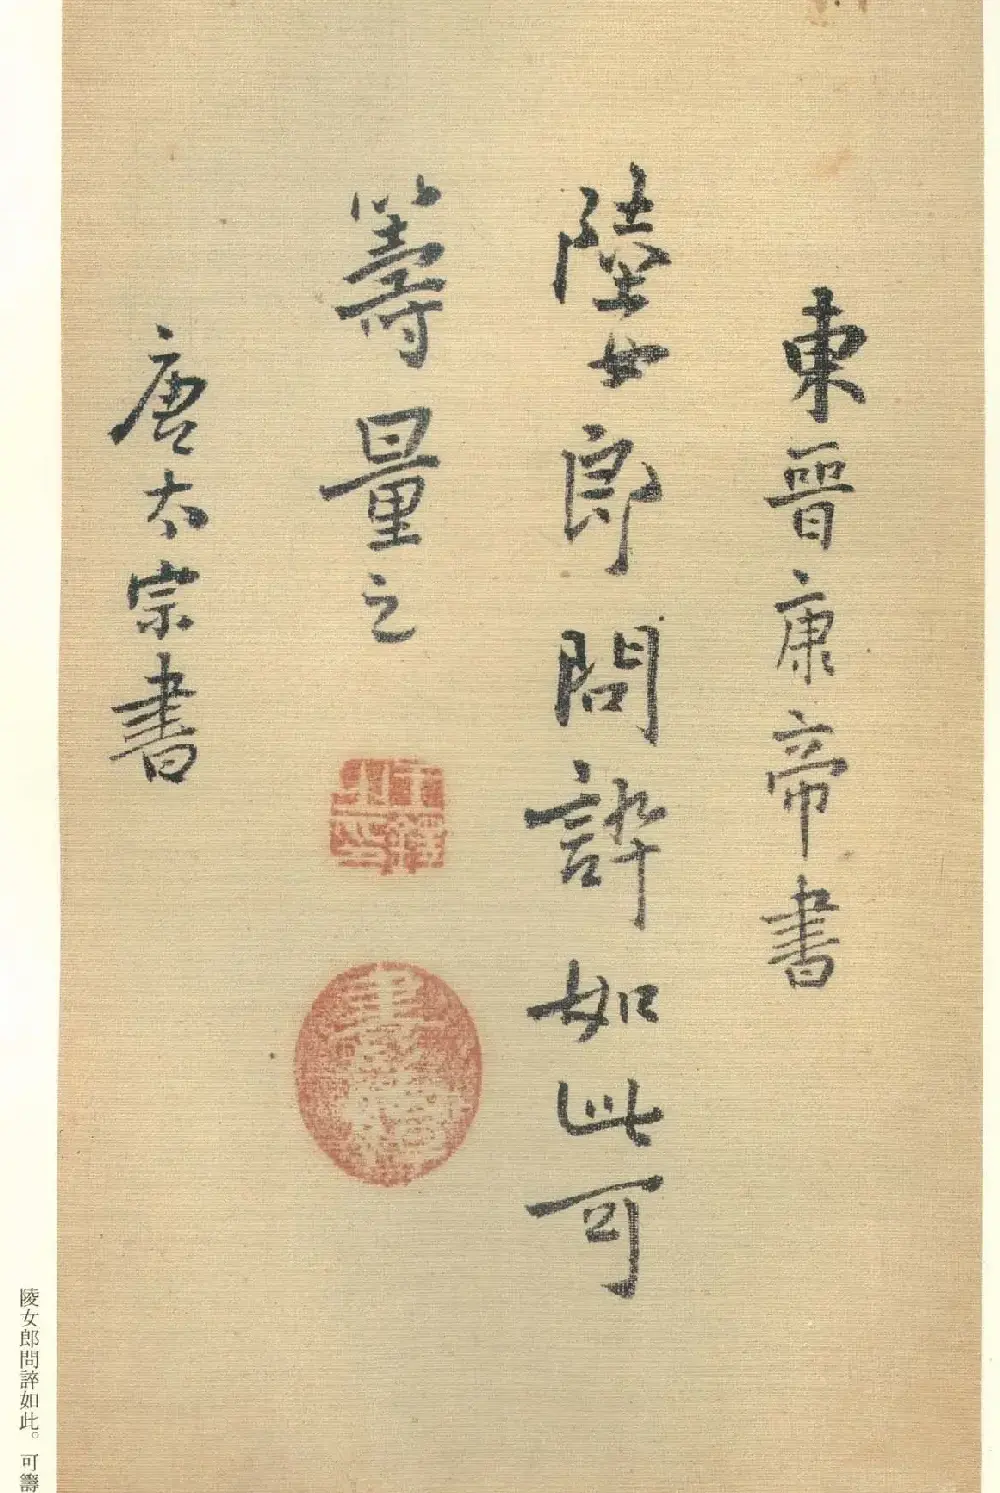 東晉康帝書
陸女郎問誶如此可
籌量之
唐太宗書
陵女郎問誶如此。可籌